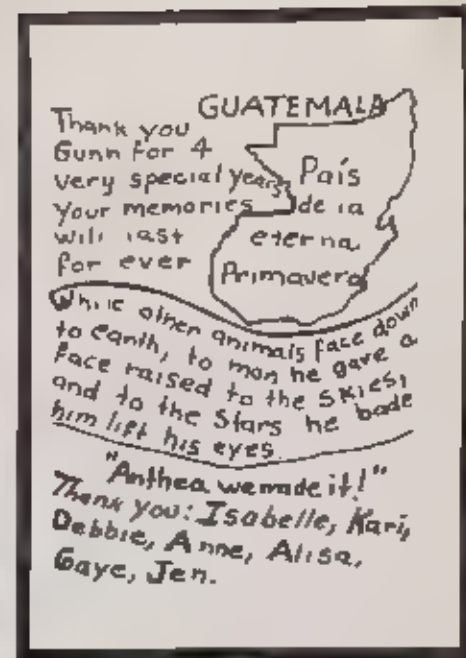 GUATEMALA
Thank you
Gunn for 4
very special years
Your memories
will last
for ever
País
de la
eterna
Primavera
While other animals face down
to earth, to man he gave a
face raised to the skies,
and to the Stars he bade
him lift his eyes.
"Anthea we made it!"
Thank you: Isabelle, Kari,
Debbie, Anne, Alisa,
Gaye, Jen.